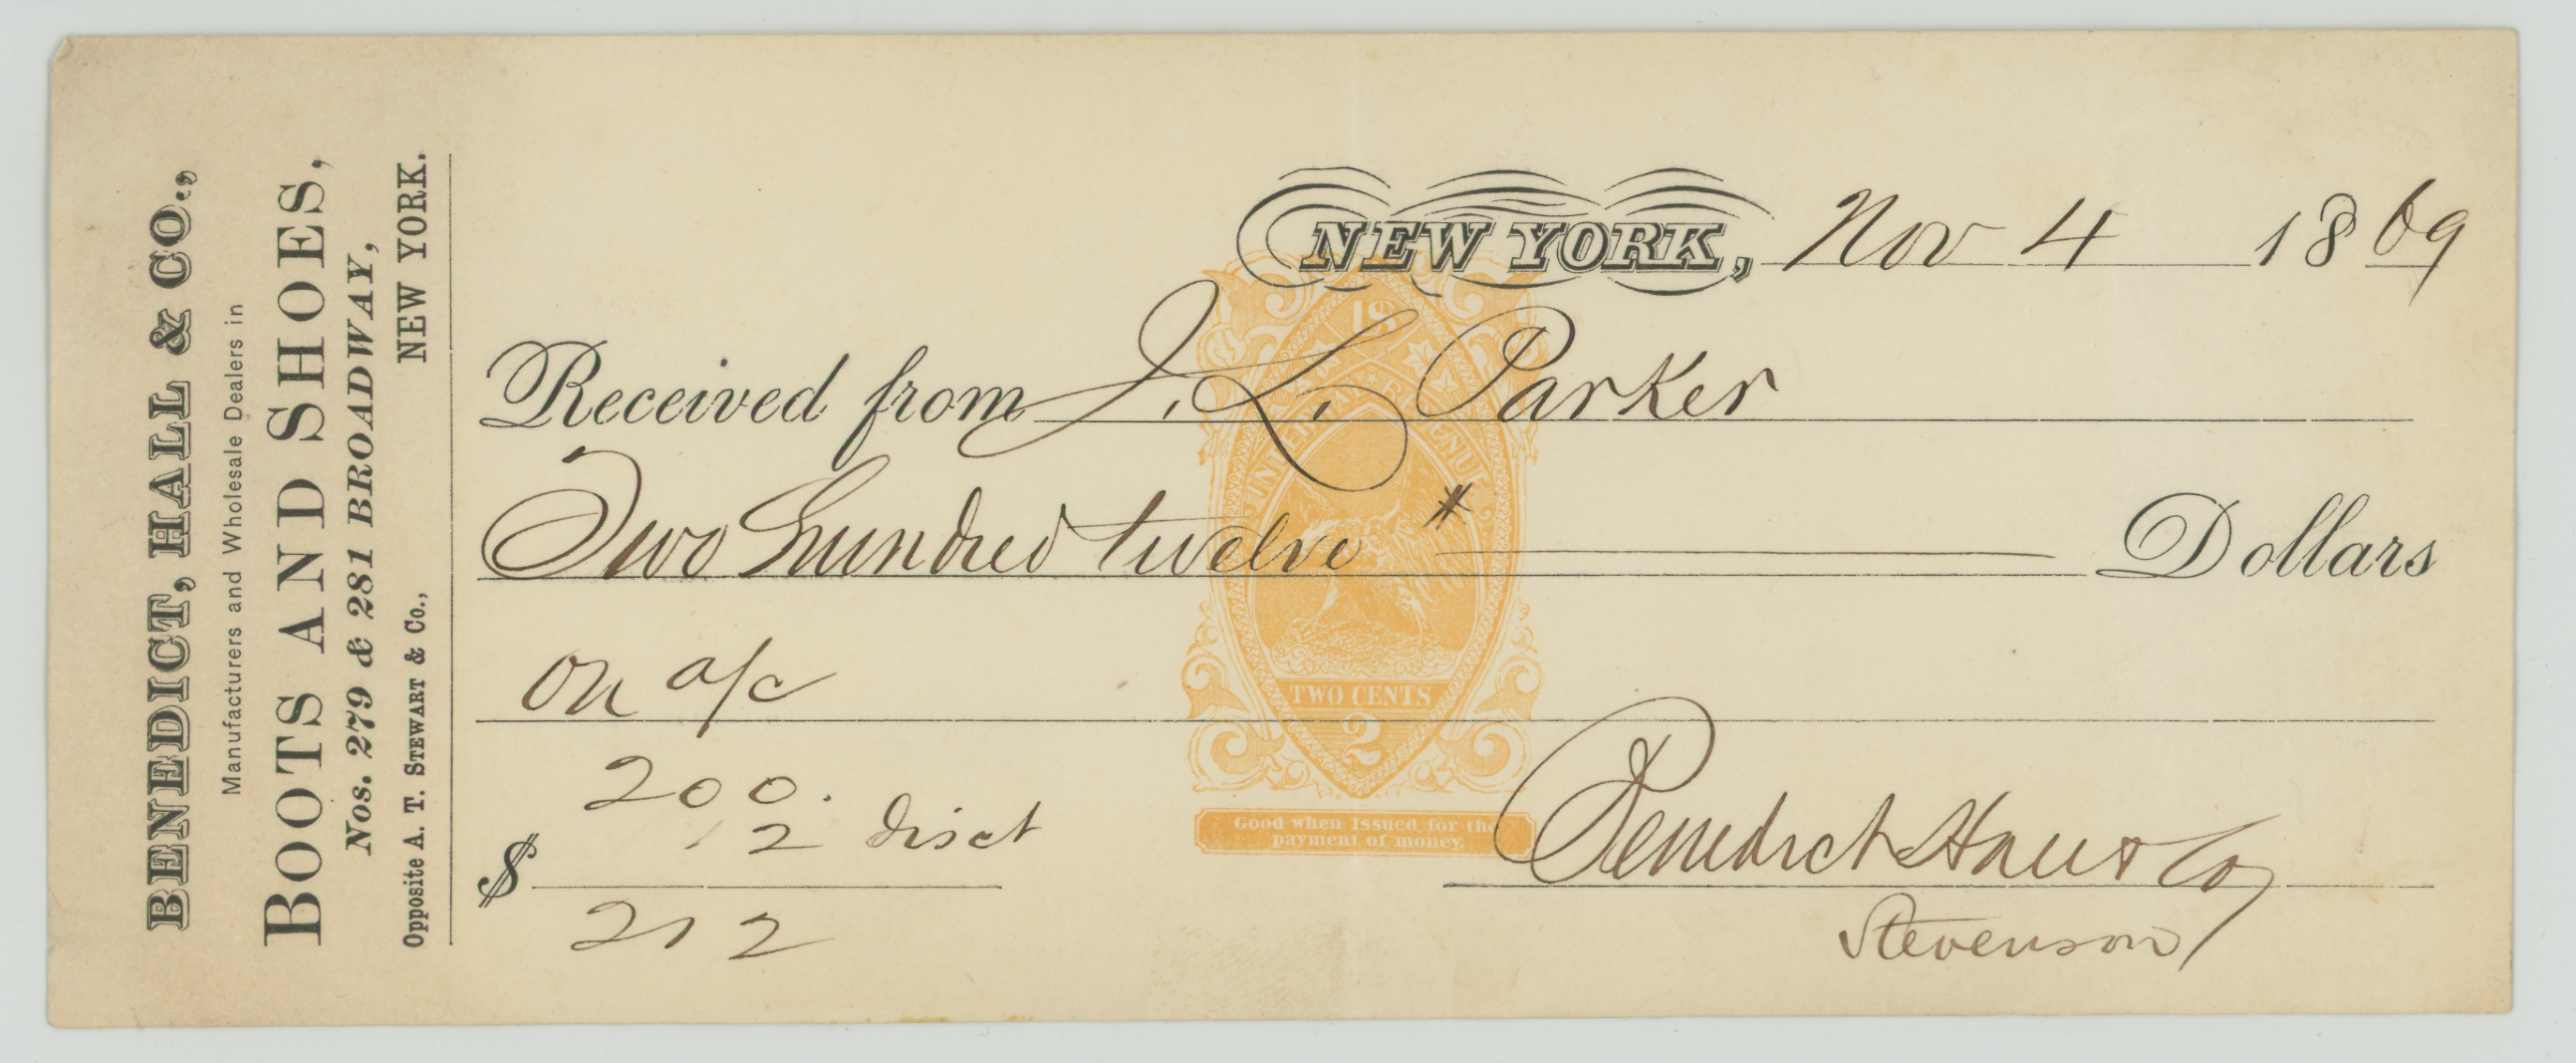 BENEDICT, HALL & CO.,
Manufacturers and Wholesale Dealers in
BOOTS AND SHOES,
Nos. 279 & 281 BROADWAY,
Opposite A. T. STEWART & Co., NEW YORK.
NEW YORK, Nov 4 1869
Received from J. L. Parker
Two hundred twelve * Dollars
on a/c
200.
12 disct
$
212
U.S. INTERNAL REVENUE
TWO CENTS
2
Good when issued for the
payment of money.
Benedict Hall & Co
Stevenson